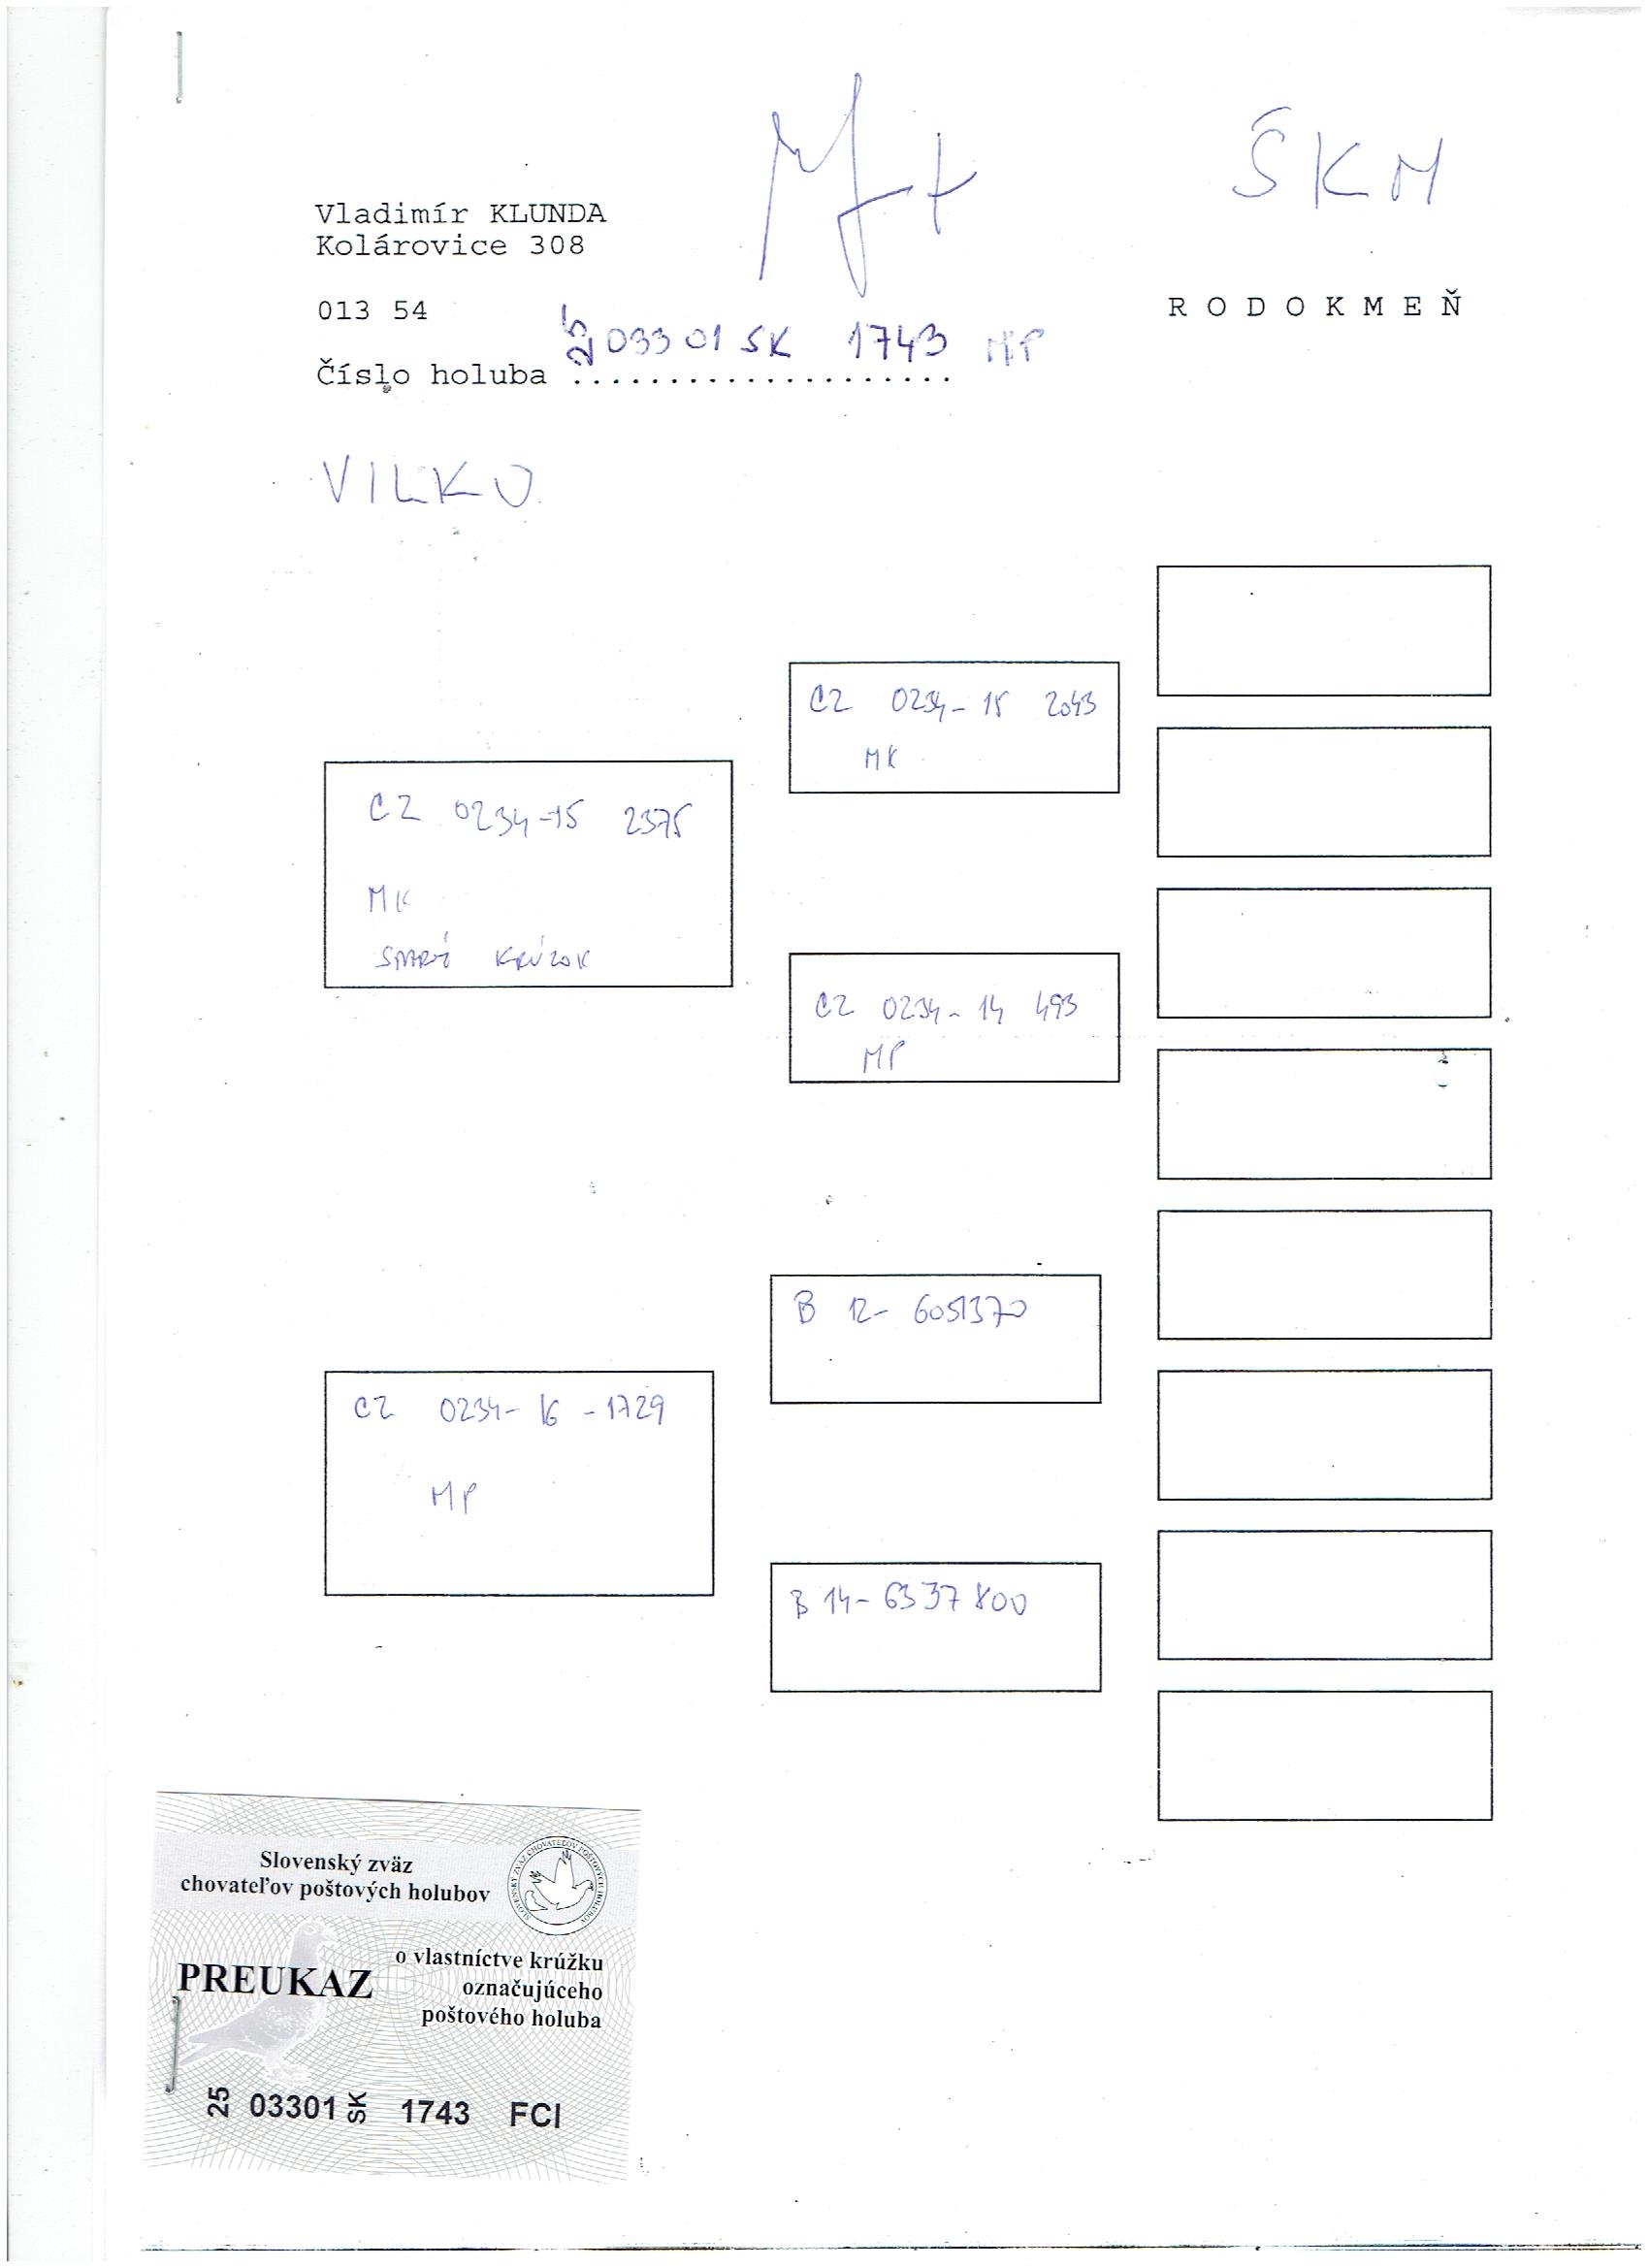 ŠKM
Vladimír KLUNDA
Kolárovice 308
013 54
RODOKMEŇ
25 03301 SK 1743 MP
Číslo holuba ....................
VILKO
CZ 0234-15 2043
MK
CZ 0234-15 2375
MK
STARÝ KRÚŽOK
CZ 0234-14 493
MP
B 12- 6051370
CZ 0234-16-1729
MP
B 14-6337800
Slovenský zväz
chovateľov poštových holubov
SLOVENSKÝ ZVÄZ CHOVATEĽOV POŠTOVÝCH HOLUBOV
PREUKAZ
o vlastníctve krúžku
označujúceho
poštového holuba
25 03301 SK 1743 FCI